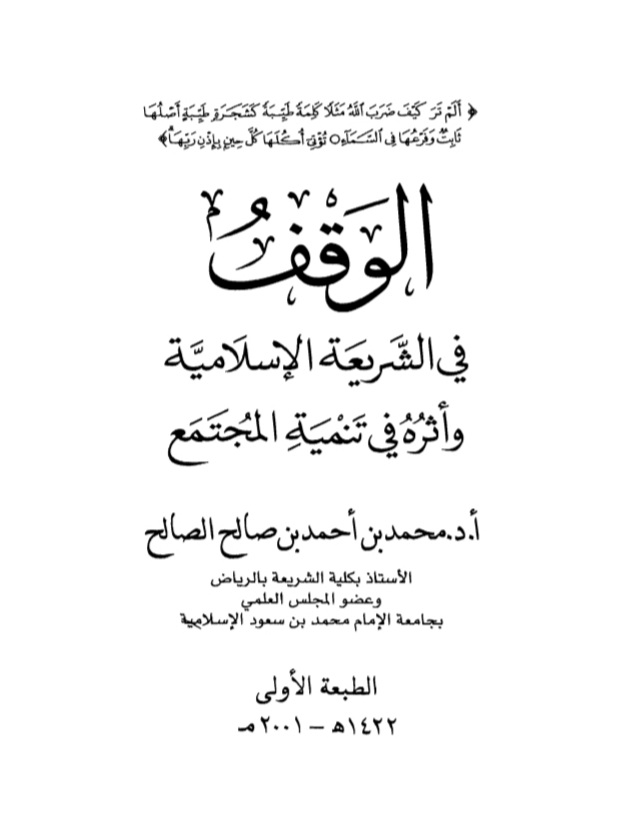 ﴿ أَلَمْ تَرَ كَيْفَ ضَرَبَ اللَّهُ مَثَلًا كَلِمَةً طَيِّبَةً كَشَجَرَةٍ طَيِّبَةٍ أَصْلُهَا
ثَابِتٌ وَفَرْعُهَا فِي السَّمَاءِ ○ تُؤْتِي أُكُلَهَا كُلَّ حِينٍ بِإِذْنِ رَبِّهَا ﴾
الوَقفُ
في الشَّريعَة الإسلَاميَّة
وأثرُهُ في تَنْميَةِ المُجتَمَع
أ.د.محمد بن أحمد بن صالح الصالح
الأستاذ بكلية الشريعة بالرياض
وعضو المجلس العلمي
بجامعة الإمام محمد بن سعود الإسلامية
الطبعة الأولى
١٤٢٢هـ – ٢٠٠١مـ